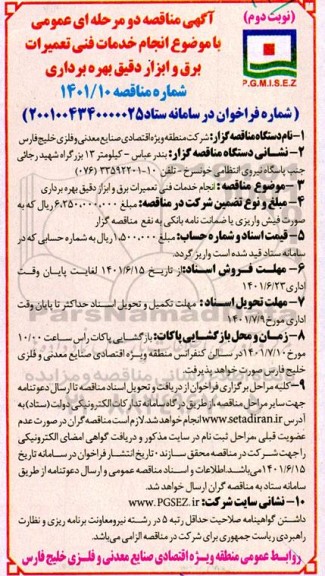 (نوبت دوم)
آگهی مناقصه دو مرحله ای عمومی
با موضوع انجام خدمات فنی تعمیرات
برق و ابزار دقیق بهره برداری
P.G.M.I.S.E.Z
شماره مناقصه ۱۴۰۱/۱۰
(شماره فراخوان در سامانه ستاد ۲۰۰۱۰۰۴۳۴۰۰۰۰۰۲۵)
۱-نام دستگاه مناقصه گزار: شرکت منطقه ویژه اقتصادی صنایع معدنی و فلزی خلیج فارس
۲- نشانی دستگاه مناقصه گزار: بندر عباس - کیلومتر ۱۳ بزرگراه شهید رجائی
جنب پاسگاه نیروی انتظامی خونسرخ - تلفن ۱۰-۳۳۵۹۲۲۰۱ (۰۷۶)
۳- موضوع مناقصه: انجام خدمات فنی تعمیرات برق و ابزار دقیق بهره برداری
۴- مبلغ و نوع تضمین شرکت در مناقصه: مبلغ ۶,۲۵۰,۰۰۰,۰۰۰ ریال که به
صورت فیش واریزی یا ضمانت نامه بانکی به نفع مناقصه گزار
۵- قیمت اسناد و شماره حساب: مبلغ ۱,۵۰۰,۰۰۰ ریال به شماره حسابی که در
سامانه ستاد قید شده است واریز گردد.
۶- مهلت فروش اسناد: از تاریخ ۱۴۰۱/۶/۱۵ لغایت پایان وقت
اداری ۱۴۰۱/۶/۲۳
۷- مهلت تحویل اسناد: مهلت تکمیل و تحویل اسناد حداکثر تا پایان وقت
اداری مورخ ۱۴۰۱/۷/۹
۸- زمان و محل بازگشایی پاکات: بازگشایی پاکات راس ساعت ۱۰/۰۰
مورخ ۱۴۰۱/۷/۱۰ در سالن کنفرانس منطقه ویژه اقتصادی صنایع معدنی و فلزی
خلیج فارس صورت خواهد پذیرفت.
۹- کلیه مراحل برگزاری فراخوان از دریافت و تحویل اسناد مناقصه تا ارسال دعوتنامه
جهت سایر مراحل مناقصه، از طریق درگاه سامانه تدارکات الکترونیکی دولت (ستاد) به
آدرس www.setadiran.ir انجام خواهد شد. لازم است مناقصه گران در صورت عدم
عضویت قبلی، مراحل ثبت نام در سایت مذکور و دریافت گواهی امضای الکترونیکی
را جهت شرکت در مناقصه محقق سازند؛ تاریخ انتشار فراخوان در سامانه تاریخ
۱۴۰۱/۶/۱۵ می‌باشد. اطلاعات و اسناد مناقصه عمومی و ارسال دعوتنامه از طریق
سامانه ستاد به مناقصه گران ارسال خواهد شد.
۱۰- نشانی سایت شرکت: www.PGSEZ.ir
داشتن گواهینامه صلاحیت حداقل رتبه ۵ در رشته نیرو معاونت برنامه ریزی و نظارت
راهبردی ریاست جمهوری برای شرکت در مناقصه الزامی می‌باشد.
روابط عمومی منطقه ویژه اقتصادی صنایع معدنی و فلزی خلیج فارس